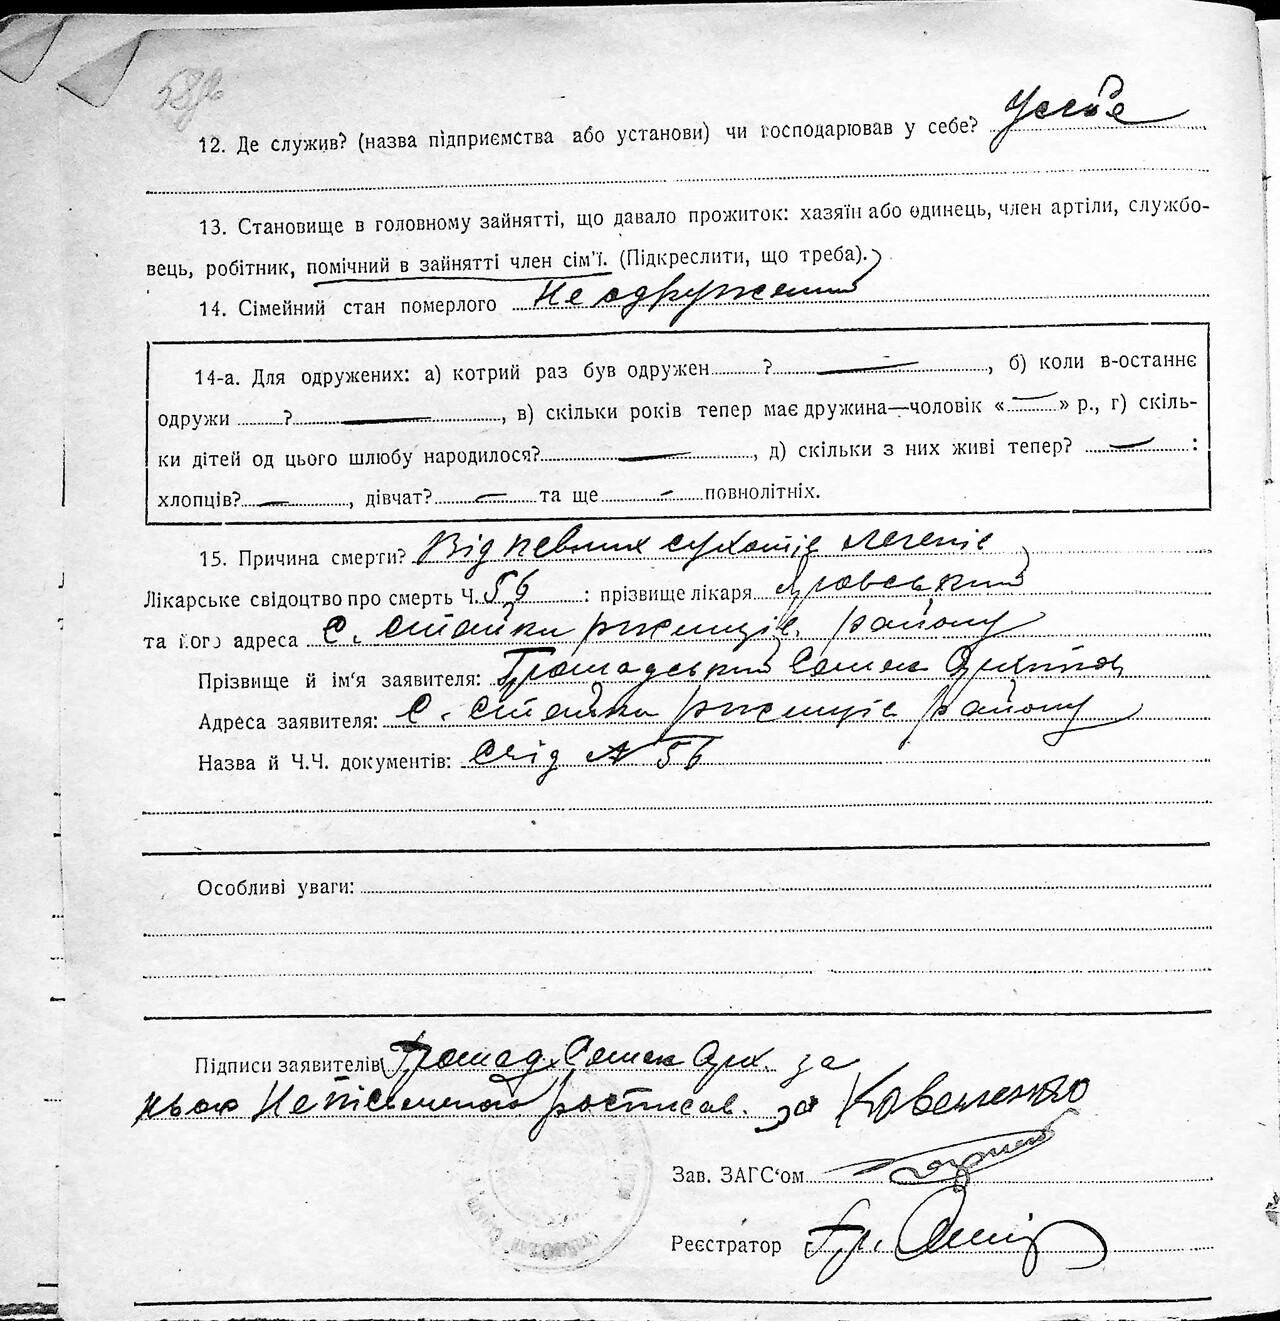 12. Де служив? (назва підприємства або установи) чи господарював у себе? У себе
13. Становище в головному зайнятті, що давало прожиток: хазяїн або одинець, член артіли, службо-
вець, робітник, помічний в зайнятті член сім'ї. (Підкреслити, що треба).
14. Сімейний стан померлого Не одружений
14-а. Для одружених: а) котрий раз був одружен ? — , б) коли в-останнє
одружи ? — , в) скільки років тепер має дружина—чоловік « — » р., г) скіль-
ки дітей од цього шлюбу народилося? — , д) скільки з них живі тепер? — :
хлопців? — , дівчат? — та ще - повнолітніх.
15. Причина смерти? Від певних сухотів легенів
Лікарське свідоцтво про смерть Ч. 56 : прізвище лікаря
та його адреса С. Стайки ржищів. району
Прізвище й ім'я заявителя: Громадський Семен
Адреса заявителя: С. Стайки ржищів району
Назва й Ч.Ч. документів: Свід № 56
Особливі уваги:
Підписи заявителів Громад. Семен Арх. за
нього Неписьменного росписав. за
Зав. ЗАГС'ом
Реєстратор